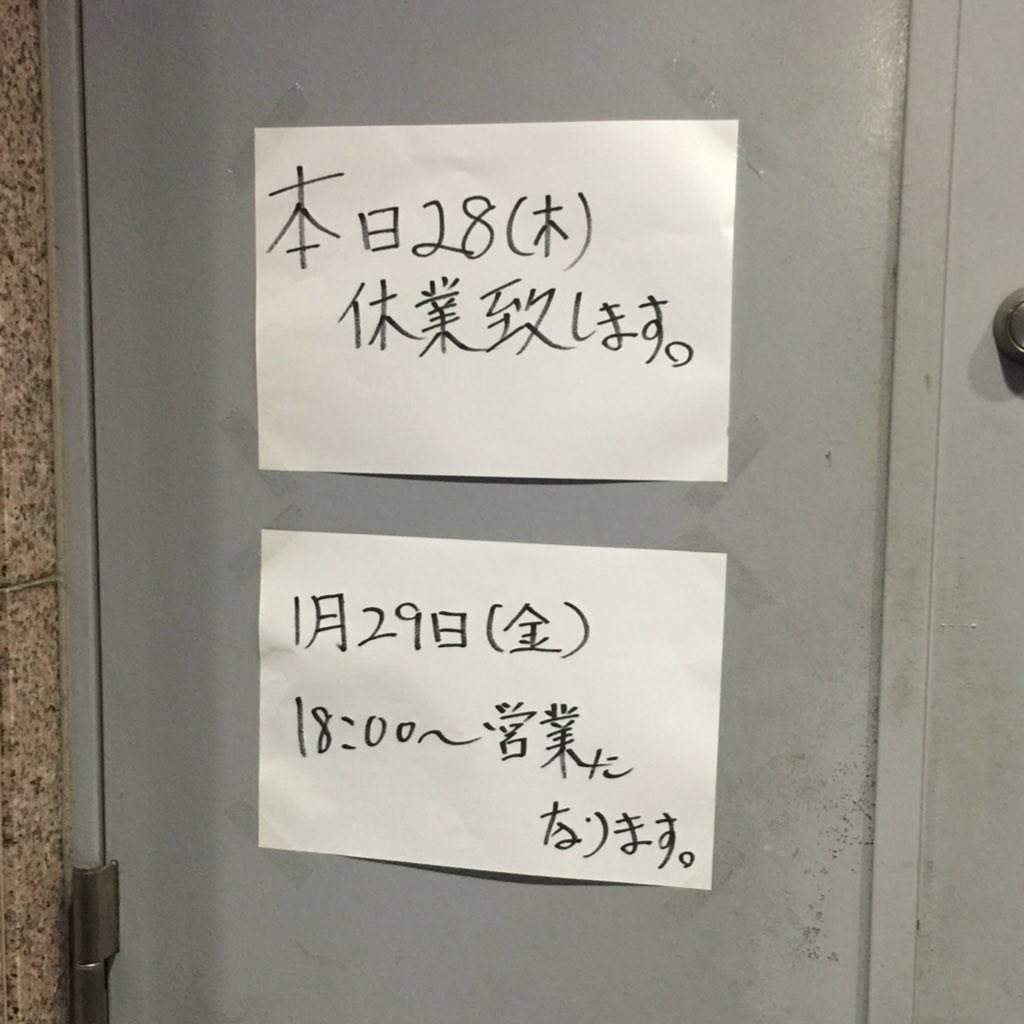 本日28(木)
休業致します。
1月29日(金)
18:00～営業に
なります。